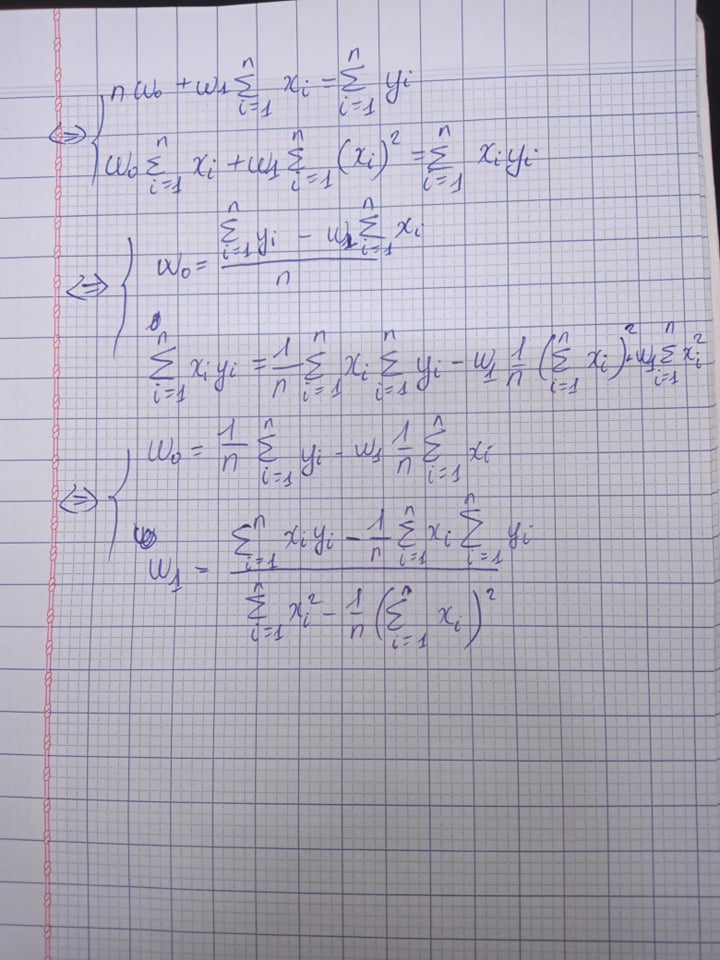 ⇔ { n w₀ + w₁ ∑_{i=1}^{n} x_i = ∑_{i=1}^{n} y_i
w₀ ∑_{i=1}^{n} x_i + w₁ ∑_{i=1}^{n} (x_i)² = ∑_{i=1}^{n} x_i y_i
⇔ { w₀ = (∑_{i=1}^{n} y_i − w₁ ∑_{i=1}^{n} x_i) / n
∑_{i=1}^{n} x_i y_i = 1/n ∑_{i=1}^{n} x_i ∑_{i=1}^{n} y_i − w₁ 1/n (∑_{i=1}^{n} x_i)² + w₁ ∑_{i=1}^{n} x_i²
⇔ { w₀ = 1/n ∑_{i=1}^{n} y_i − w₁ 1/n ∑_{i=1}^{n} x_i
w₁ = (∑_{i=1}^{n} x_i y_i − 1/n ∑_{i=1}^{n} x_i ∑_{i=1}^{n} y_i) / (∑_{i=1}^{n} x_i² − 1/n (∑_{i=1}^{n} x_i)²)